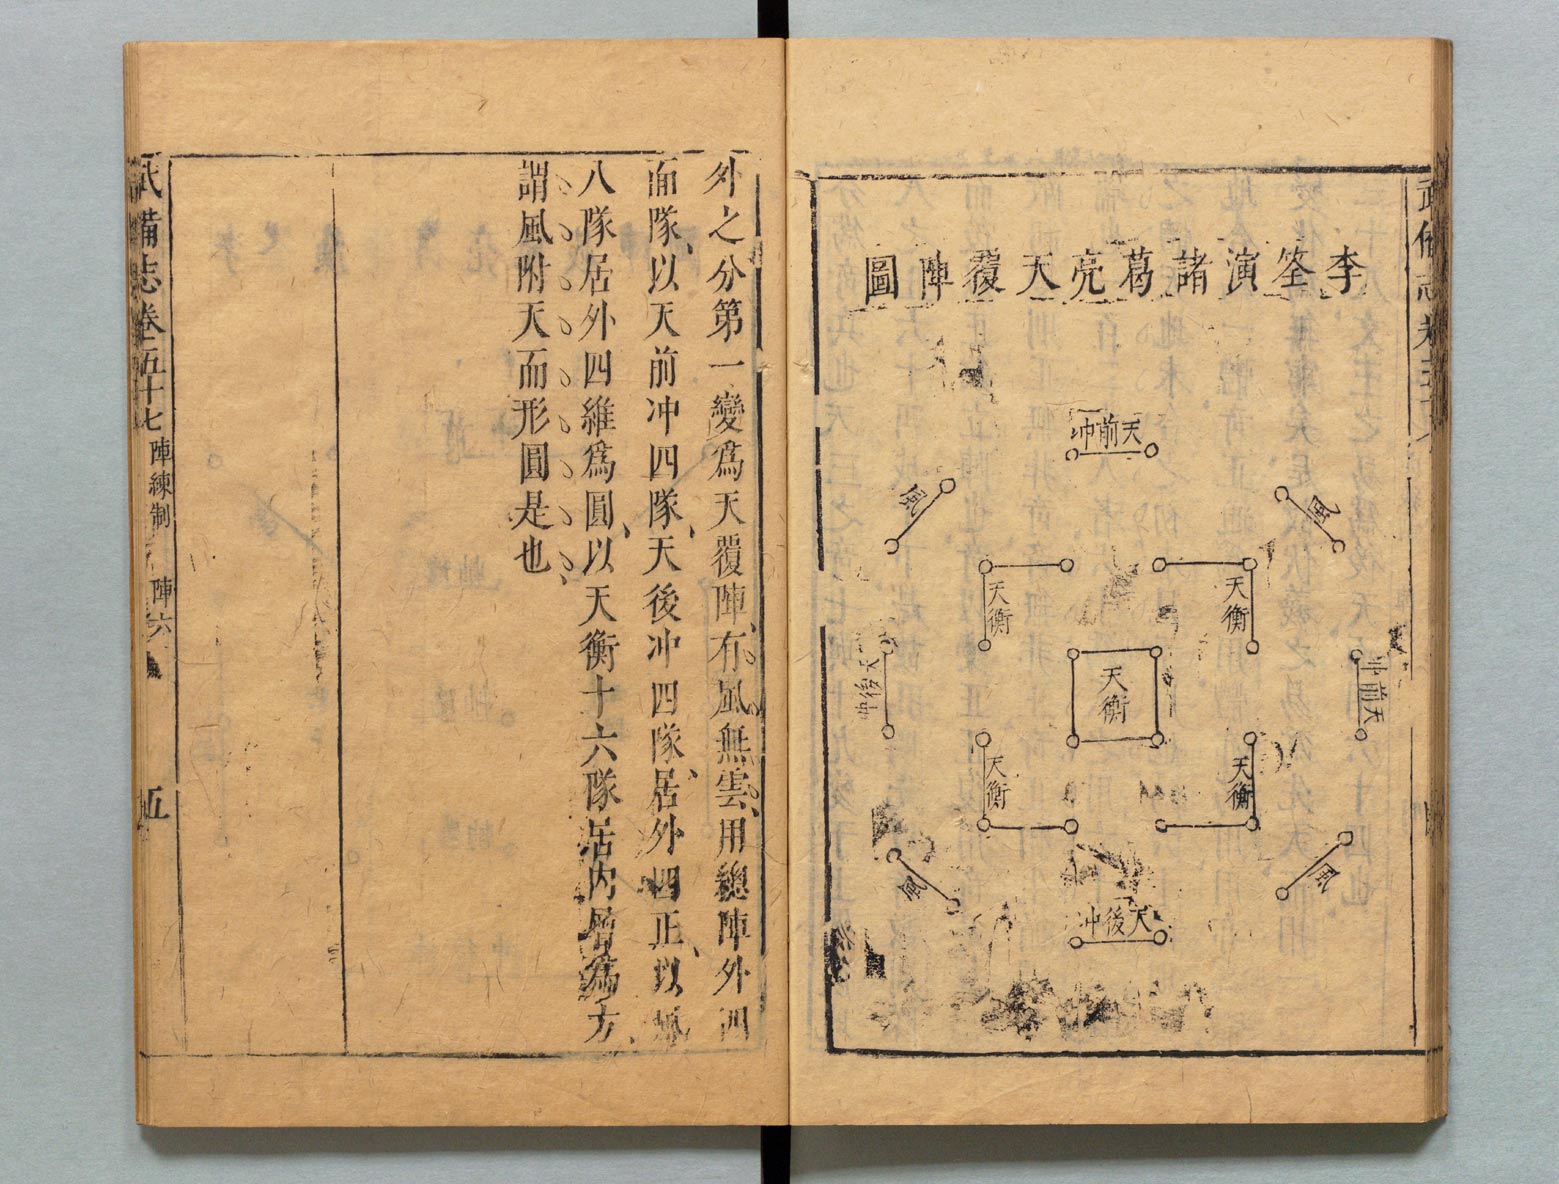 李筌演諸葛亮天覆陣圖
天前冲
風
風
天衡
天衡
天前冲
天衡
天後冲
天衡
天衡
風
風
天後冲
外之分第一變爲天覆陣、有風無雲、用總陣外四
面隊、以天前冲四隊、天後冲四隊、居外四正、以風
八隊居外四維爲圓、以天衡十六隊居内層爲方、
謂風附天而形圓是也、
武備志卷五十七 陣練制 陣六 五